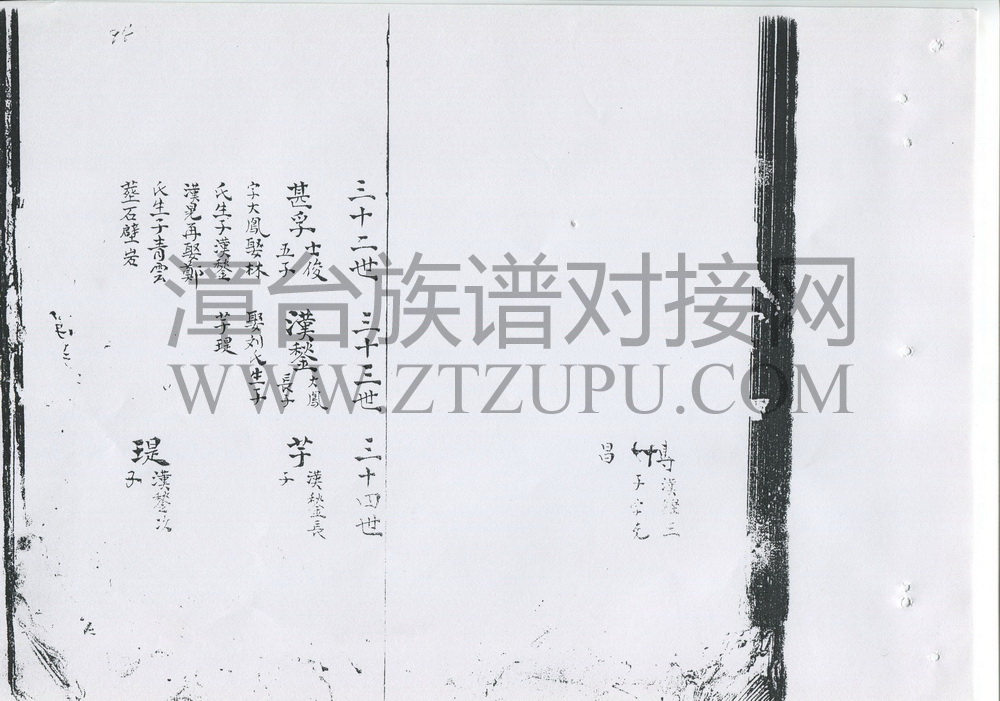 漢
三
子字
昌
三十二世
甚孚
士俊
五子
字大鳳娶林
氏生子漢鍫
漢皃再娶鄭
氏生子青雲
塟石壁岩
三十三世
漢鍫
大鳳
長子
娶刘氏生子
芋瑅
三十四世
芋
漢鍫長
子
瑅
漢鍫次
子
漳台族谱对接网
WWW.ZTZUPU.COM